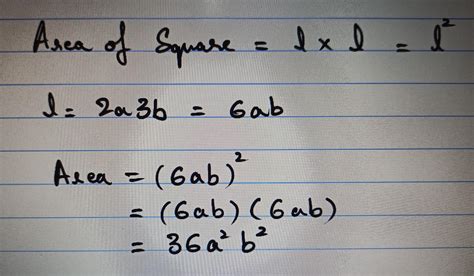 Area of Square = l x l = l²
l = 2a3b = 6ab
Area = (6ab)²
= (6ab)(6ab)
= 36a² b²